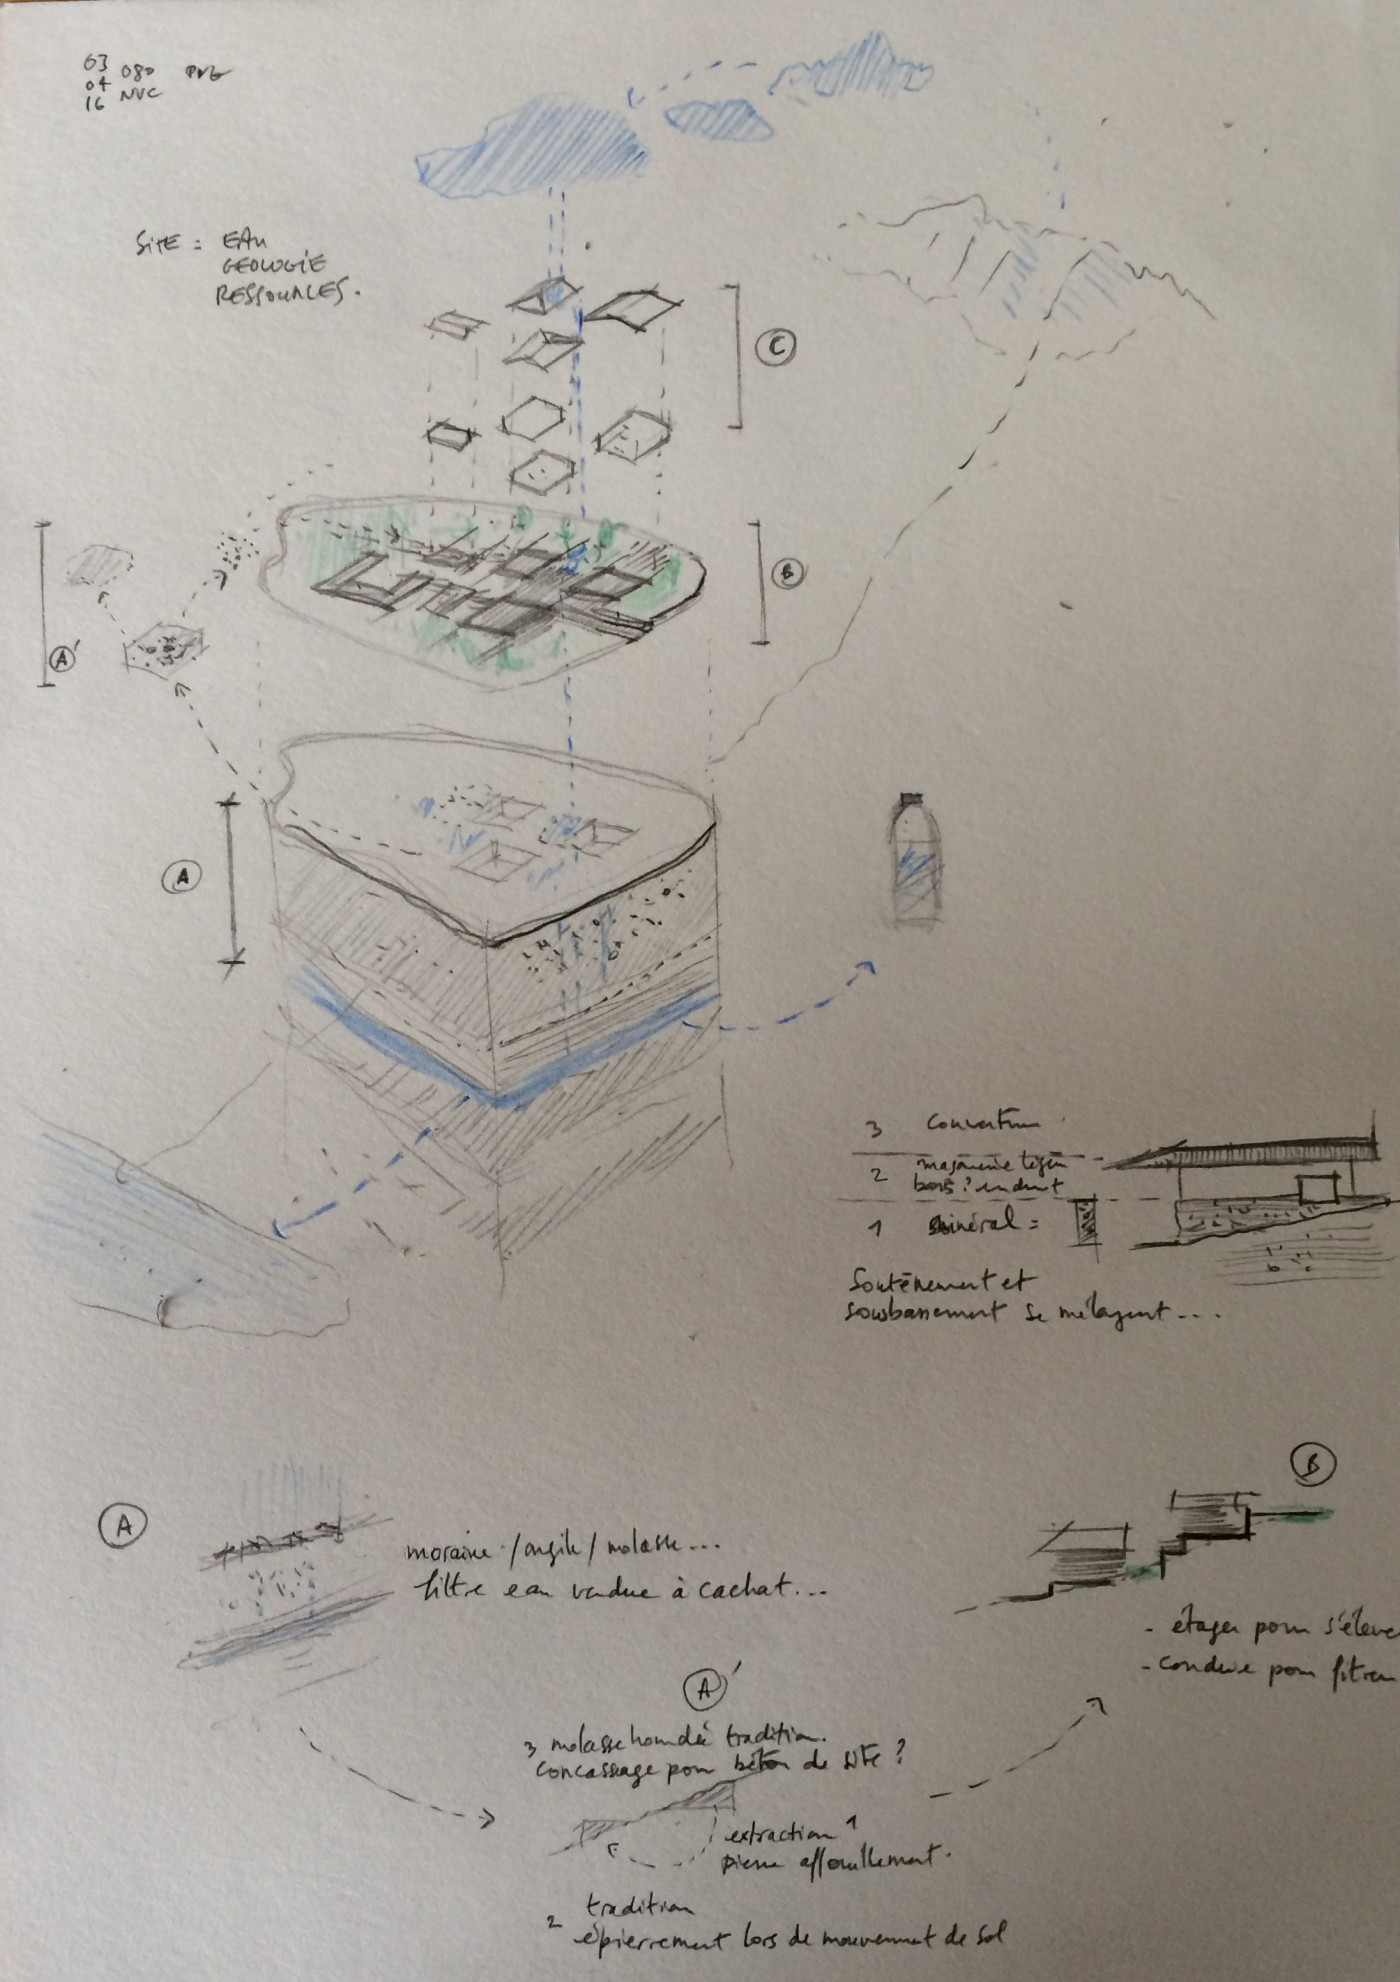 03
04
16
080
NVC
SITE = EAU
GEOLOGIE
RESSOURCES.
C
B
A'
A
3 couverture
2 maçonnerie légère
bois? enduit
1 minéral =
Soutènement et
soubassement se mélangent....
A
moraine / argile / molasse...
filtre eau vendue à cachat...
B
- étager pour s'éleve
- conduire pour filtrer
A'
3 molasse tradition.
concassage pour béton de site ?
extraction 1
pierre affouillement.
2 tradition
épierrement lors de mouvement de sol